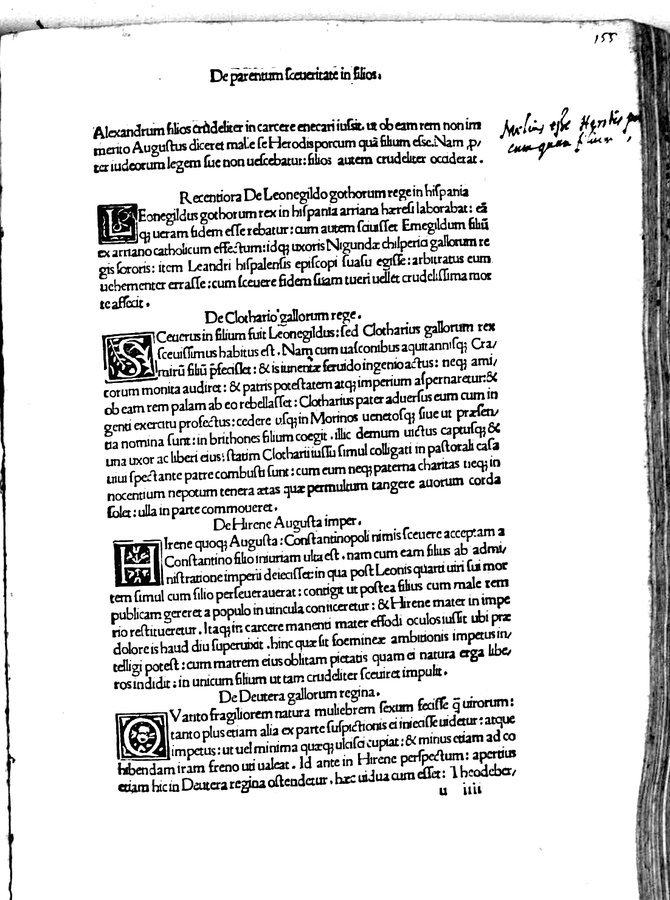 155
De parentum sceueritate in filios.
Alexandrum filios crudeliter in carcere enecari iussit. ut ob eam rem non im
merito Augustus diceret malle se Herodis porcum quā filium esse. Nam ,p,
ter iudeorum legem sue non uescebatur: filios autem crudeliter occiderat.
Melius esse Herodis por
cum quam filium,
Recentiora De Leonegildo gothorum rege in hispania
LEonegildus gothorum rex in hispania arriana hæresi laborabat: eā
q; ueram fidem esse rebatur: cum autem sciuisset Emegildum filiū
ex arriano catholicum effectum: idq; uxoris Nigundæ chilperici gallorum re
gis sororis: item Leandri hispalensis episcopi suasu egisse: arbitratus eum
uehementer errasse: cum sceuere fidem suam tueri uellet crudelissima mor
te affecit.
De Clothario gallorum rege.
SCeuerus in filium fuit Leonegildus: sed Clotharius gallorum rex
sceuissimus habitus est. Nam cum uasconibus aquitannisq; Cra/
mirū filiū p̄fecisset: & is iuuentæ feruido ingenio actus: neq; ami/
corum monita audiret: & patris potestatem atq; imperium aspernaretur: &
ob eam rem palam ab eo rebellasset: Clotharius pater aduersus eum cum in
genti exercitu profectus: cedere usq; in Morinos uenetosq; siue ut præsen/
tia nomina sunt: in brithones filium coegit. illic demum uictus captusq; &
una uxor ac liberi eius: statim Clotharii iussu simul colligati in pastorali casa
uiui spectante patre combusti sunt: cum eum neq; paterna charitas neq; in
nocentium nepotum tenera ætas quæ permultum tangere auorum corda
solet: ulla in parte commoueret.
De Hirene Augusta imper.
HIrene quoq; Augusta: Constantinopoli nimis sceuere acceptam a
Constantino filio iniuriam ulta est. nam cum eam filius ab admi/
nistratione imperii deiecisset: in qua post Leonis quarti uiri sui mor
tem simul cum filio perseuerauerat: contigit ut postea filius cum male rem
publicam gereret a populo in uincula coniiceretur: & Hirene mater in impe
rio restitueretur. Itaq; in carcere manenti mater effodi oculos iussit ubi præ
dolore is haud diu superuixit. hinc quæ sit foeminæ ambitionis impetus in/
telligi potest: cum matrem eius oblitam pietatis quam ei natura erga libe/
ros indidit: in unicum filium ut tam crudeliter sceuiret impulit.
De Deutera gallorum regina.
QVanto fragiliorem natura muliebrem sexum fecisse q̄ uirorum:
tanto plus etiam alia ex parte suspictionis ei iniecasse uidetur: atque
impetus: ut uel minima quæq; ulcisci cupiat: & minus etiam ad co
hibendam iram freno uti ualeat. Id ante in Hirene perspectum: apertius
etiam hic in Deutera regina ostendetur. hæc uidua cum esset: Theodeber/
u iiii